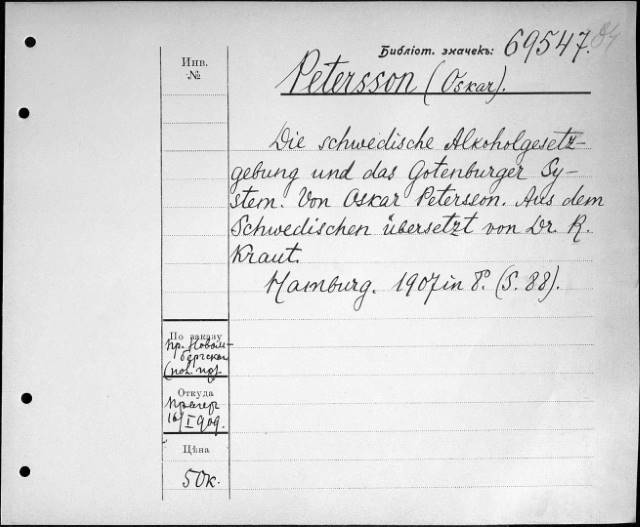 Библіот. значекъ: 69547.
Инв.
№
Petersson (Oskar).
Die schwedische Alkoholgesetz-
gebung und das Gotenburger Sy-
stem. Von Oskar Petersson. Aus dem
Schwedischen übersetzt von Dr. R.
Kraut.
Hamburg. 1907 in 8°. (S. 88).
По заказу
пр. Новом-
бергскаго
Откуда
16/I 909.
Цѣна
50к.